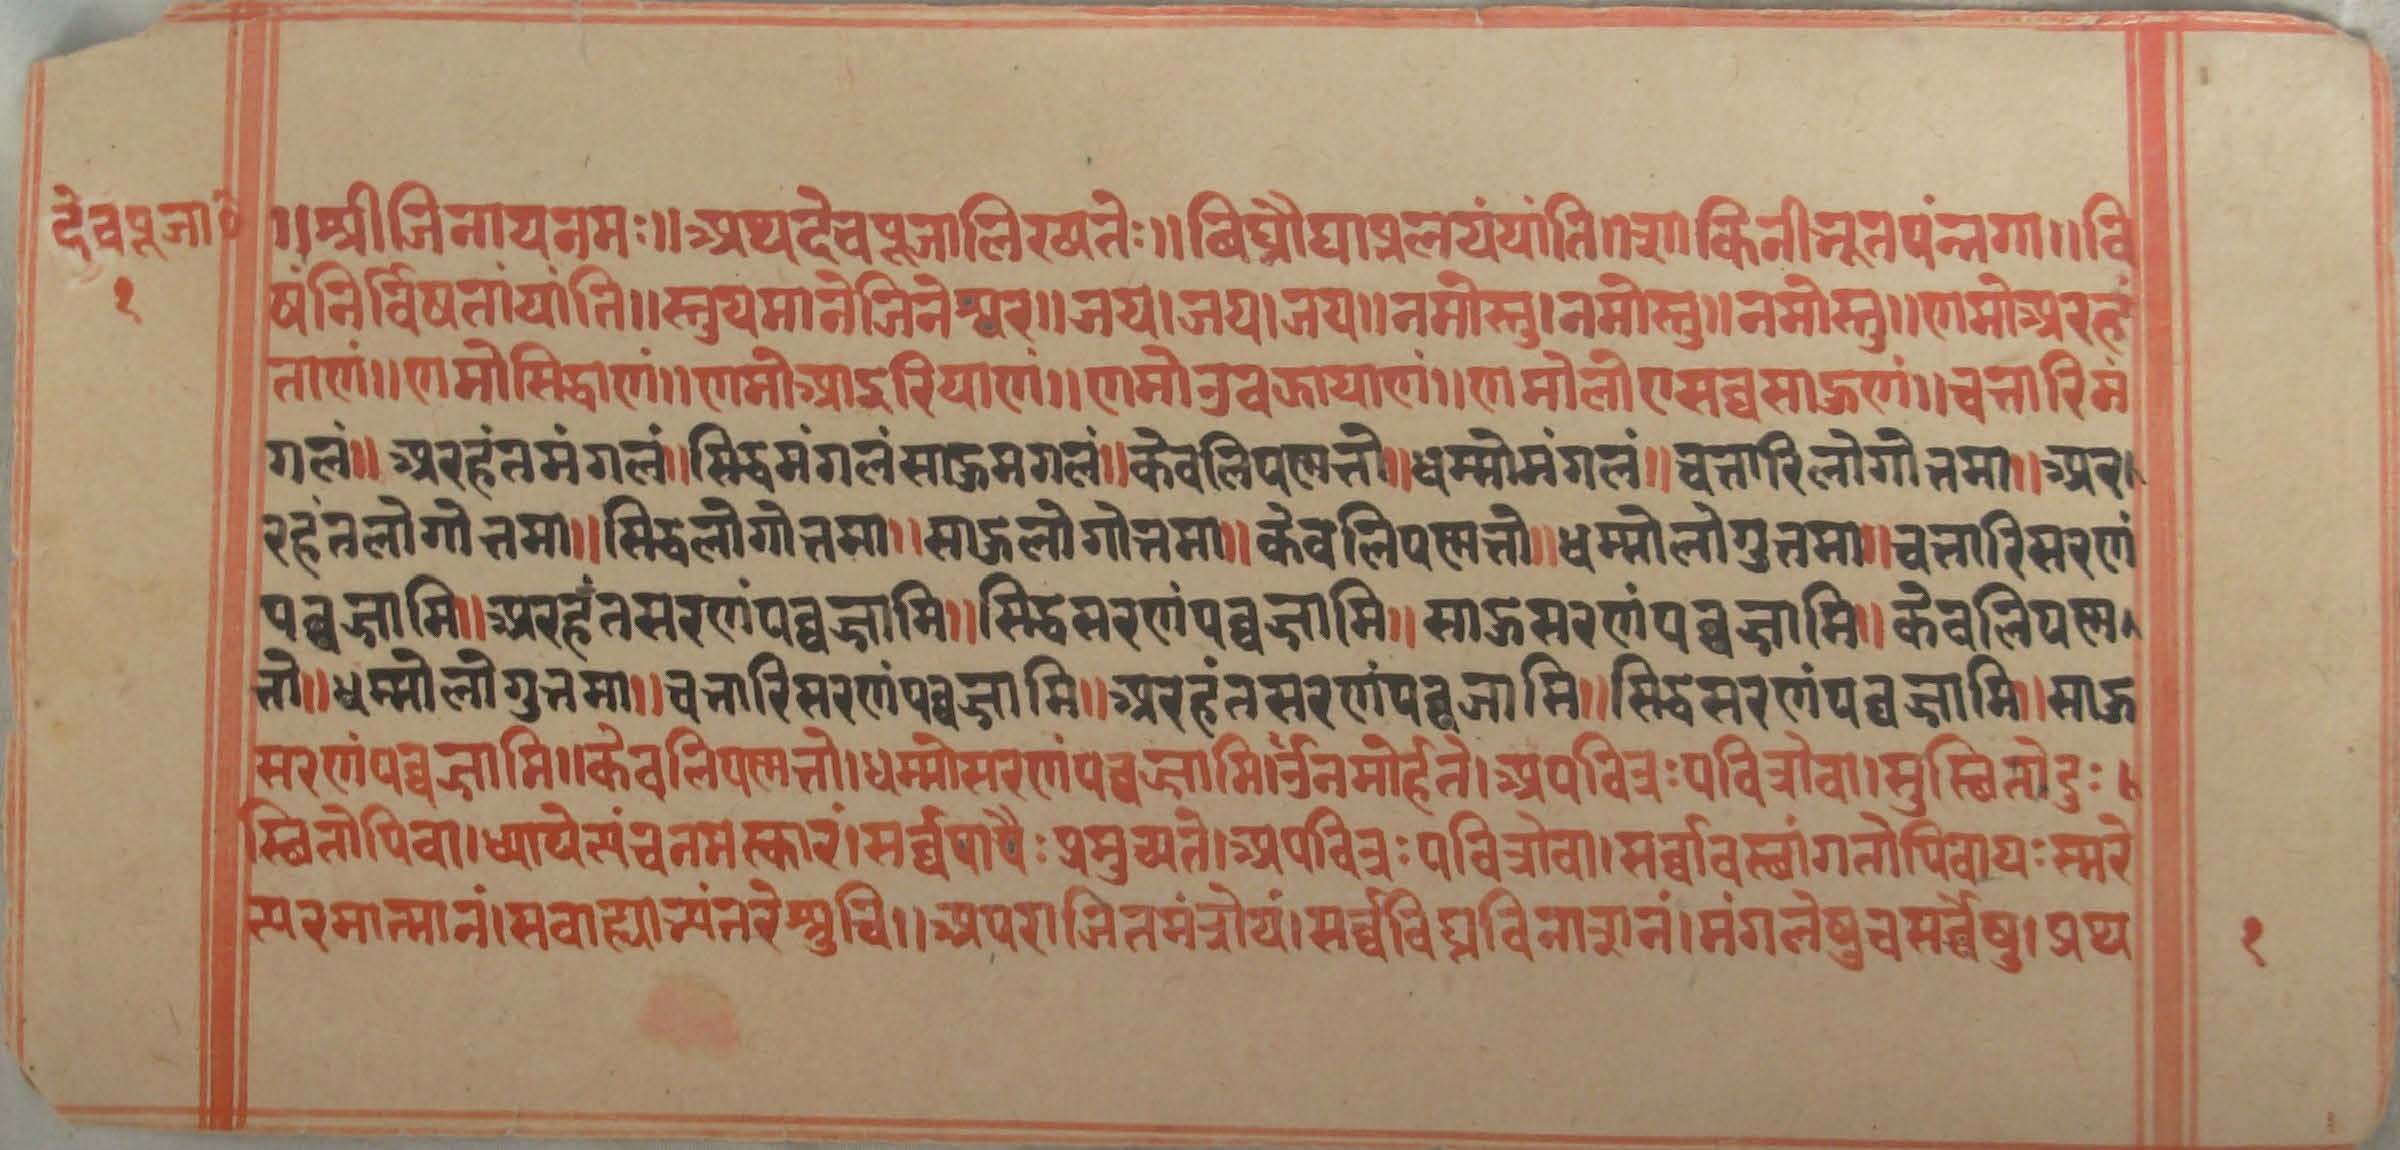 देवपूजा०
१
॥श्रीजिनायनमः॥अथदेवपूजालिख्यतेः॥विघ्नौघाप्रलयंयांति॥शाकिनीभूतपंन्नगा॥वि
षंनिर्विषतांयांति॥स्तुयमानेजिनेश्वर॥जय।जय।जय॥नमोस्तु।नमोस्तु॥नमोस्तु॥णमोअरहं
ताणं॥णमोसिद्धाणं॥णमोआइरियाणं॥णमोउवझायाणं॥णमोलोएसव्वसाहूणं॥चत्तारिमं
गलं॥अरहंतमंगलं॥सिद्धमंगलंसाहूमगलं॥केवलिपण्णत्तो॥धम्मोमंगलं॥चत्तारिलोगोत्तमा॥अर
रहंतलोगोत्तमा॥सिद्धलोगोत्तमा॥साहूलोगोत्तमा॥केवलिपण्णत्तो॥धम्मोलोगुत्तमा॥चत्तारिसरणं
पव्वज्जामि॥अरहंतसरणंपव्वज्जामि॥सिद्धसरणंपव्वज्जामि॥साहूसरणंपव्वज्जामि॥केवलिपण्ण
त्तो॥धम्मोलोगुत्तमा॥चत्तारिसरणंपव्वज्जामि॥अरहंतसरणंपव्वजामि॥सिद्धसरणंपव्वज्जामि॥साहू
सरणंपव्वज्जामि॥केवलिपण्णत्तो।धम्मोसरणंपव्वज्जामि।ॐनमोर्हते।अपवित्रःपवित्रोवा।सुस्थितोदुः।
स्थितोपिवा।ध्यायेत्पंचनमस्कारं।सर्व्वपापैःप्रमुच्यते।अपवित्रःपवित्रोवा।सर्व्वावस्थांगतोपिवायःस्मरे
त्परमात्मानं।सवाह्याभ्यंतरेश्रुचि॥अपराजितमंत्रोयं।सर्व्वविघ्नविनाशनं।मंगलेषुचसर्व्वेषु।प्रथ
१